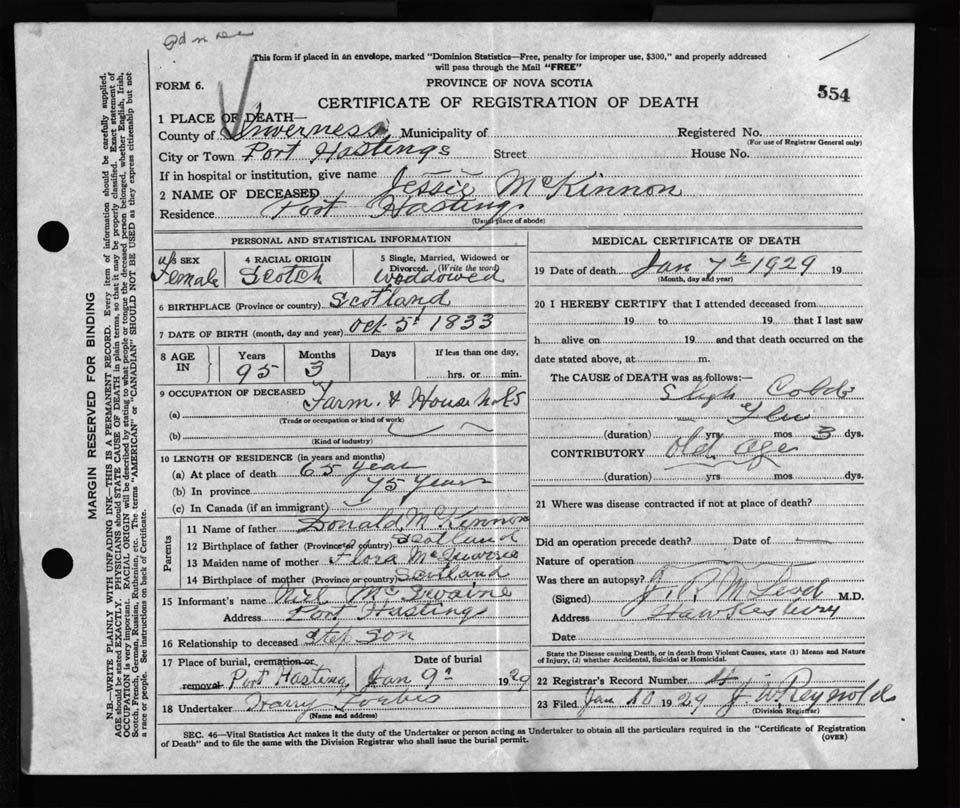 This form if placed in an envelope, marked "Dominion Statistics—Free, penalty for improper use, $300," and properly addressed
will pass through the Mail "FREE"
FORM 6.
PROVINCE OF NOVA SCOTIA
554
CERTIFICATE OF REGISTRATION OF DEATH
1 PLACE OF DEATH—
County of Inverness Municipality of Registered No.
(For use of Registrar General only)
City or Town Port Hastings Street House No.
If in hospital or institution, give name
2 NAME OF DECEASED Jessie McKinnon
Residence Port Hastings
(Usual place of abode)
PERSONAL AND STATISTICAL INFORMATION
SEX Female
4 RACIAL ORIGIN Scotch
5 Single, Married, Widowed or Divorced. (Write the word) Woddowed
6 BIRTHPLACE (Province or country) Scotland
7 DATE OF BIRTH (month, day and year) Oct 5th 1833
8 AGE IN Years Months Days If less than one day,
95 3 hrs. or min.
9 OCCUPATION OF DECEASED
(a) Farm &
(Trade or occupation or kind of work)
(b)
(Kind of industry)
10 LENGTH OF RESIDENCE (in years and months)
(a) At place of death 65 year
(b) In province 75 Years
(c) In Canada (if an immigrant)
Parents
11 Name of father Donald McKinnon
12 Birthplace of father (Province or country) Scotland
13 Maiden name of mother Flora
14 Birthplace of mother (Province or country) Scotland
15 Informant's name
Address Port Hastings
16 Relationship to deceased Step Son
17 Place of burial, cremation or removal Port Hastings
Date of burial Jan 9th 1929
18 Undertaker Harry Forbes
(Name and address)
MEDICAL CERTIFICATE OF DEATH
19 Date of death Jan 7th 1929 19
(Month, day and year)
20 I HEREBY CERTIFY that I attended deceased from
19 to 19 that I last saw
h alive on 19 and that death occurred on the
date stated above, at m.
The CAUSE of DEATH was as follows:—
Cold
Flu
(duration) yrs mos 3 dys.
CONTRIBUTORY Old age
(duration) yrs mos dys.
21 Where was disease contracted if not at place of death?
Did an operation precede death? Date of
Nature of operation
Was there an autopsy?
(Signed) J. P. McLeod M.D.
Address Hawkesbury
Date
State the Disease causing Death, or in death from Violent Causes, state (1) Means and Nature
of Injury, (2) whether Accidental, Suicidal or Homicidal.
22 Registrar's Record Number
23 Filed Jan 10 1929 J W Reynolds
(Division Registrar)
SEC. 46—Vital Statistics Act makes it the duty of the Undertaker or person acting as Undertaker to obtain all the particulars required in the "Certificate of Registration
of Death" and to file the same with the Division Registrar who shall issue the burial permit.
(OVER)
MARGIN RESERVED FOR BINDING
N.B.—WRITE PLAINLY WITH UNFADING INK—THIS IS A PERMANENT RECORD. Every item of information should be carefully supplied.
AGE should be stated EXACTLY. PHYSICIANS should STATE CAUSE OF DEATH in plain terms, so that it may be properly classified. Exact statement of
OCCUPATION is very important. RACIAL ORIGIN will be described by stating to what people or tongue the deceased person belonged, whether English, Irish,
Scotch, French, German, Russian, Ruthenian, etc. The terms "AMERICAN" or "CANADIAN" SHOULD NOT BE USED as they express citizenship but not
a race or people. See instructions on back of Certificate.